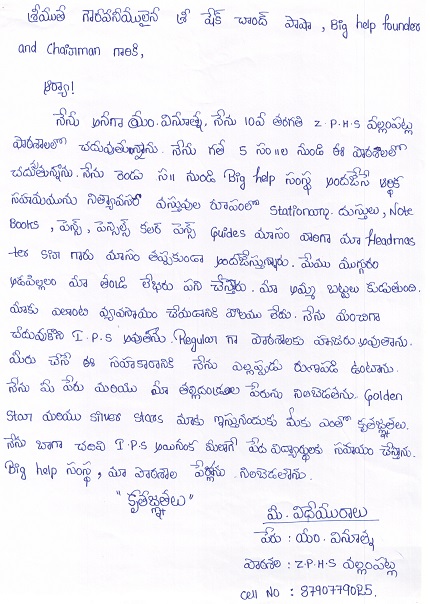 శ్రీమతే గౌరవనీయులైన శ్రీ షేక్ చాంద్ పాషా, Big help founder
and Chairman గారికి,
ఆర్యా!
నేను అనగా యం. వినూత్న. నేను 10వ తరగతి Z.P.H.S వల్లంపట్ల
పాఠశాలలో చదువుతున్నాను. నేను గత 5 సం॥ల నుండి ఈ పాఠశాలలో
చదువుతున్నాను. నేను రెండు సం॥ నుండి Big help సంస్థ అందజేసే ఆర్థిక
సహాయమును నిత్యావసర వస్తువుల రూపంలో Stationary దుస్తులు, Note
Books, పెన్స్, పెన్సిల్స్ కలర్ పెన్స్ Guides మాసం వారిగా మా Headmas
-ter Sir గారు మాసం తప్పకుండా అందజేస్తున్నారు. మేము ముగ్గురం
ఆడపిల్లలం మా తండ్రి లేబరు పని చేస్తారు. మా అమ్మ బట్టలు కుడుతుంది.
మాకు ఎలాంటి వ్యవసాయం చేయడానికి పొలము లేదు. నేను మంచిగా
చదువుకొని I.P.S అవుతాను. Regular గా పాఠశాలకు హాజరు అవుతాను.
మీరు చేసే ఈ సహకారానికి నేను ఎల్లప్పుడు రుణపడి ఉంటాను.
నేను మీ పేరు మరియు మా తల్లిదండ్రుల పేరును నిలబెడతాను. Golden
Star మరియు Silver Stars మాకు ఇస్తున్నందుకు మీకు ఎంతో కృతజ్ఞతలు.
నేను బాగా చదివి I.P.S అయినాక మీలాగే పేద విద్యార్థులకు సహాయం చేస్తాను.
Big help సంస్థ, మా పాఠశాల పేర్లను నిలబెడతాను.
"కృతజ్ఞతలు"
మీ. విధేయురాలు
పేరు : యం. వినూత్న
పాఠశాల : Z.P.H.S వల్లంపట్ల
Cell NO : 8790779025.